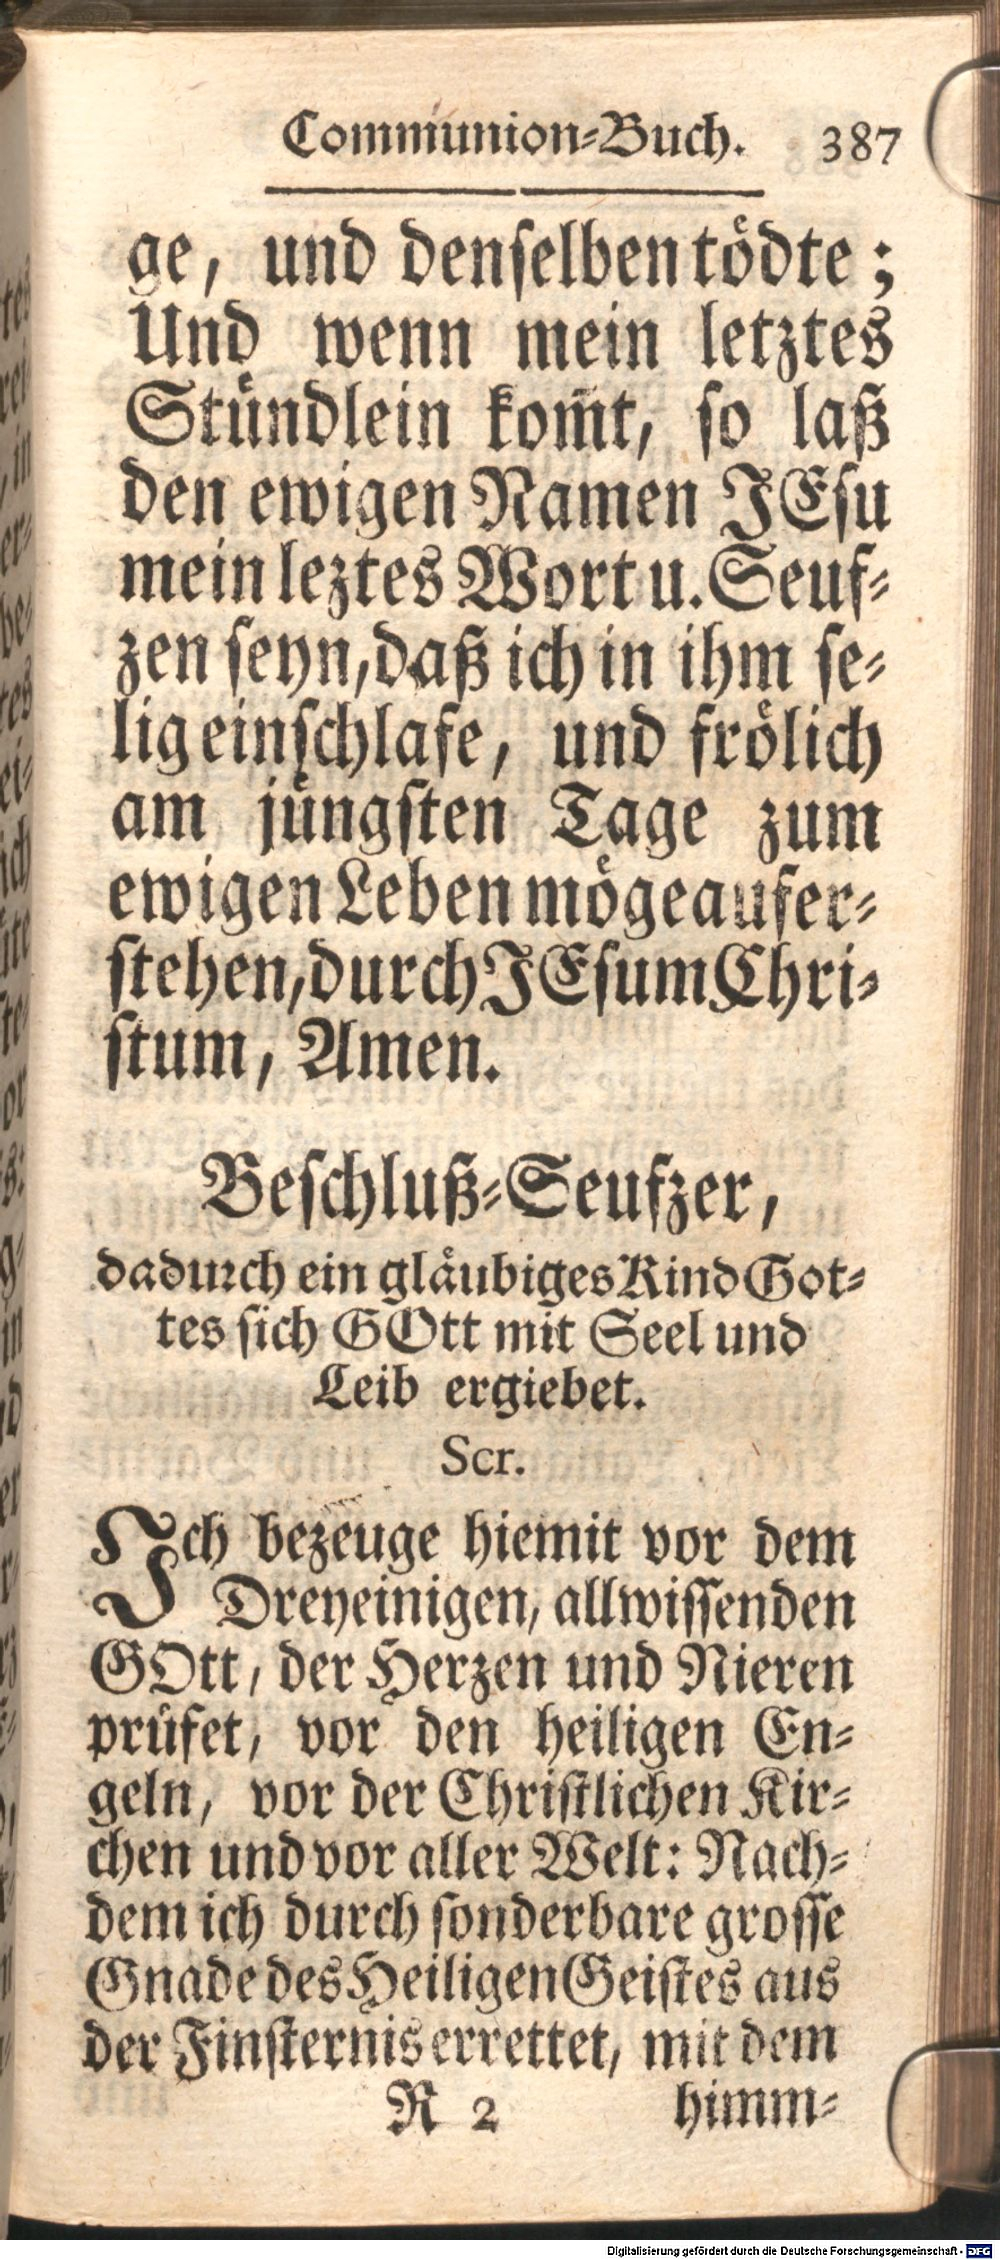 Communion-Buch. 387
ge, und denselben tödte;
Und wenn mein letztes
Stündlein kom̃t, so laß
den ewigen Namen JEsu
mein leztes Wort u. Seuf-
zen seyn, daß ich in ihm se-
lig einschlafe, und frölich
am jüngsten Tage zum
ewigen Leben möge aufer-
stehen, durch JEsum Chri-
stum, Amen.
Beschluß-Seufzer,
dadurch ein gläubiges Kind Got-
tes sich GOtt mit Seel und
Leib ergiebet.
Scr.
Ich bezeuge hiemit vor dem
Dreyeinigen, allwissenden
GOtt, der Herzen und Nieren
prüfet, vor den heiligen En-
geln, vor der Christlichen Kir-
chen und vor aller Welt: Nach-
dem ich durch sonderbare grosse
Gnade des Heiligen Geistes aus
der Finsternis errettet, mit dem
R 2 himm-
Digitalisierung gefördert durch die Deutsche Forschungsgemeinschaft - DFG